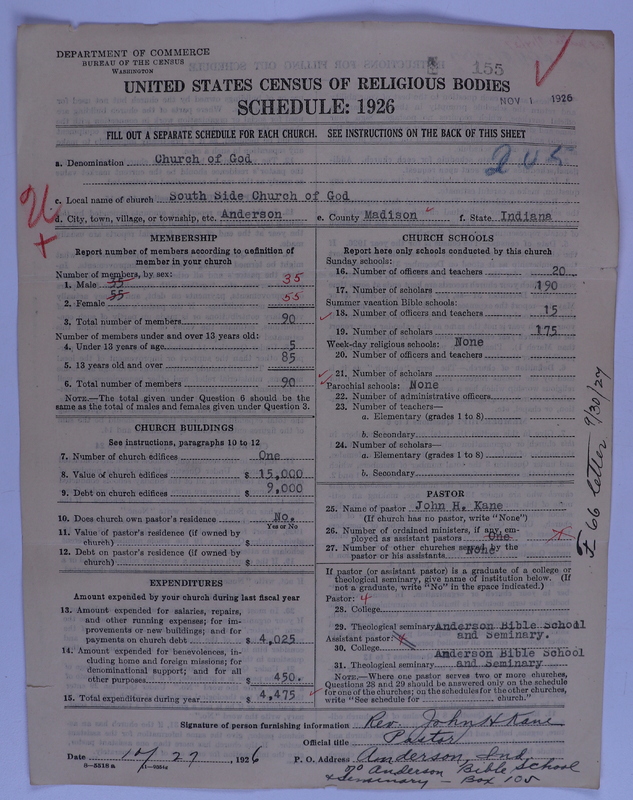 DEPARTMENT OF COMMERCE
BUREAU OF THE CENSUS
WASHINGTON
155
UNITED STATES CENSUS OF RELIGIOUS BODIES
SCHEDULE: 1926
NOV 1 1926
FILL OUT A SEPARATE SCHEDULE FOR EACH CHURCH. SEE INSTRUCTIONS ON THE BACK OF THIS SHEET
a. Denomination Church of God
c. Local name of church South Side Church of God
d. City, town, village, or township, etc. Anderson e. County Madison f. State Indiana
MEMBERSHIP
Report number of members according to definition of
member in your church
Number of members, by sex:
1. Male 35 35
2. Female 55 55
3. Total number of members 90
Number of members under and over 13 years old:
4. Under 13 years of age 5
5. 13 years old and over 85
6. Total number of members 90
NOTE.—The total given under Question 6 should be the
same as the total of males and females given under Question 3.
CHURCH BUILDINGS
See instructions, paragraphs 10 to 12
7. Number of church edifices One
8. Value of church edifices $ 15,000
9. Debt on church edifices $ 9,000
10. Does church own pastor's residence No.
Yes or No
11. Value of pastor's residence (if owned by
church) $
12. Debt on pastor's residence (if owned by
church) $
EXPENDITURES
Amount expended by your church during last fiscal year
13. Amount expended for salaries, repairs,
and other running expenses; for im-
provements or new buildings; and for
payments on church debt $ 4,025
14. Amount expended for benevolences, in-
cluding home and foreign missions; for
denominational support; and for all
other purposes $ 450.
15. Total expenditures during year $ 4,475
CHURCH SCHOOLS
Report here only schools conducted by this church
Sunday schools:
16. Number of officers and teachers 20
17. Number of scholars 190
Summer vacation Bible schools:
18. Number of officers and teachers 15
19. Number of scholars 175
Week-day religious schools: None
20. Number of officers and teachers
21. Number of scholars
Parochial schools: None
22. Number of administrative officers
23. Number of teachers—
a. Elementary (grades 1 to 8)
b. Secondary
24. Number of scholars—
a. Elementary (grades 1 to 8)
b. Secondary
PASTOR
25. Name of pastor John H. Kane
(If church has no pastor, write "None")
26. Number of ordained ministers, if any, em-
ployed as assistant pastors One
27. Number of other churches served by the
pastor or his assistants None
If pastor (or assistant pastor) is a graduate of a college or
theological seminary, give name of institution below. (If
not a graduate, write "No" in the space indicated.)
Pastor: 4
28. College
29. Theological seminary Anderson Bible School
and Seminary.
Assistant pastor:
30. College
Anderson Bible School
31. Theological seminary and Seminary
NOTE.—Where one pastor serves two or more churches,
Questions 28 and 29 should be answered only on the schedule
for one of the churches; on the schedules for the other churches,
write "See schedule for church."
I 66 letter 9/30/27
Signature of person furnishing information Rev. John H Kane
Official title Pastor
Date 10/27, 1926 P. O. Address Anderson, Ind.
% Anderson Bible School
& Seminary - Box 105
8-5518 a